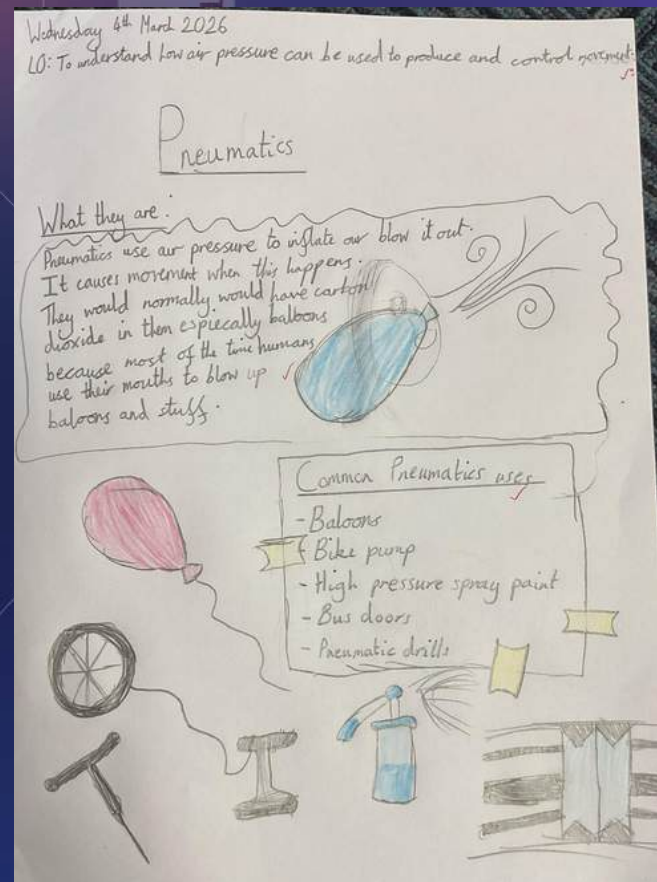 Wednesday 4th March 2026
LO: To understand how air pressure can be used to produce and control movement.
Pneumatics
What they are:
Pneumatics use air pressure to inflate our blow it out.
It causes movement when this happens.
They would normally would have carbon
dioxide in them espiecally balloons
because most of the time humans
use their mouths to blow up
baloons and stuff.
Common Pneumatics uses
- Baloons
- Bike pump
- High pressure spray paint
- Bus doors
- Pneumatic drills